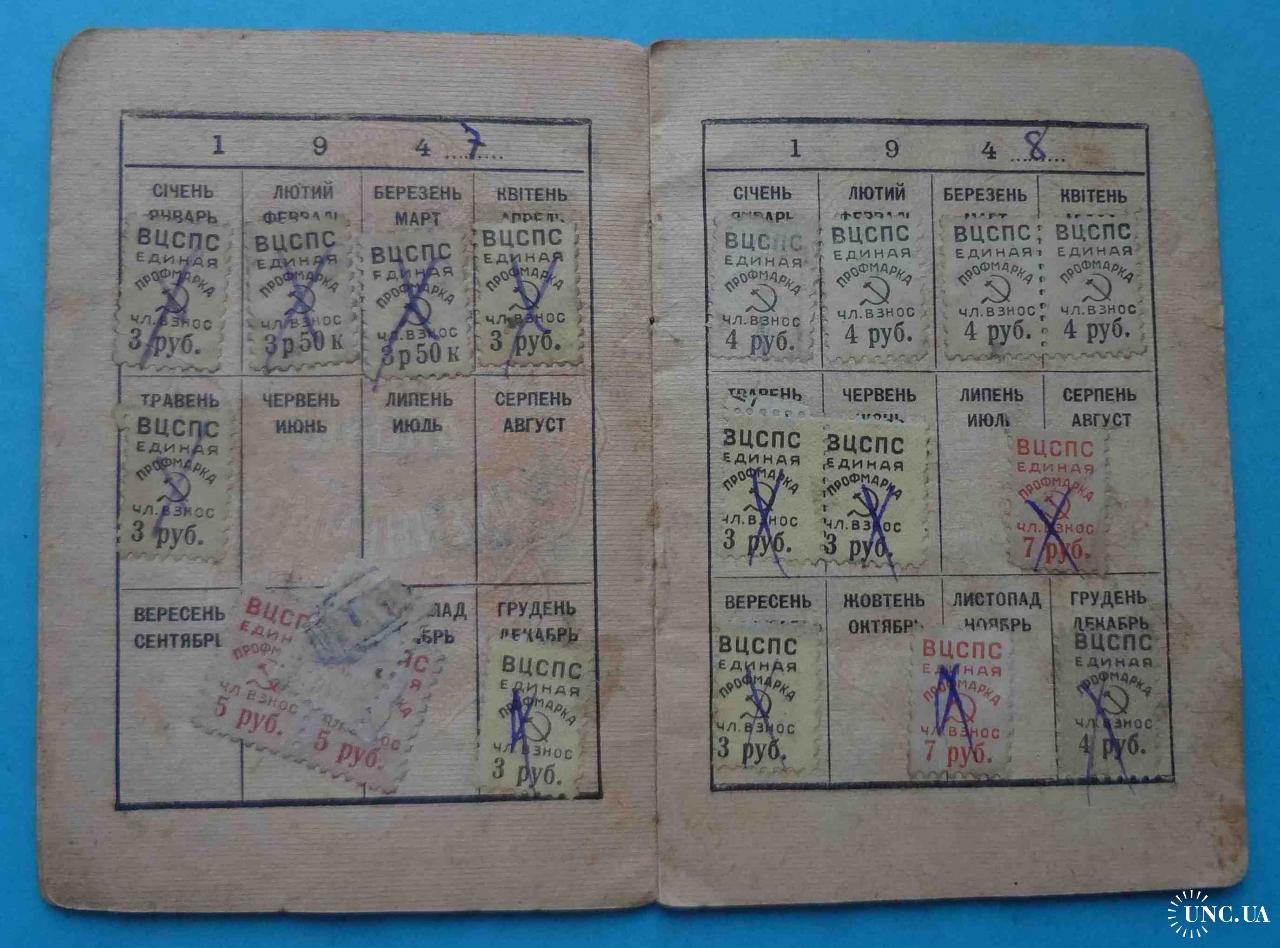 1 9 4 7
СІЧЕНЬ
ЯНВАРЬ
ВЦСПС
ЕДИНАЯ
ПРОФМАРКА
ЧЛ. ВЗНОС
3 руб.
ЛЮТИЙ
ФЕВРАЛЬ
ВЦСПС
ЕДИНАЯ
ПРОФМАРКА
ЧЛ. ВЗНОС
3 р 50 к
БЕРЕЗЕНЬ
МАРТ
ВЦСПС
ЕДИНАЯ
ПРОФМАРКА
ЧЛ. ВЗНОС
3 р 50 к
КВІТЕНЬ
АПРЕЛЬ
ВЦСПС
ЕДИНАЯ
ПРОФМАРКА
ЧЛ. ВЗНОС
3 руб.
ТРАВЕНЬ
ВЦСПС
ЕДИНАЯ
ПРОФМАРКА
ЧЛ. ВЗНОС
3 руб.
ЧЕРВЕНЬ
ИЮНЬ
ЛИПЕНЬ
ИЮЛЬ
СЕРПЕНЬ
АВГУСТ
ВЕРЕСЕНЬ
СЕНТЯБРЬ
ВЦСП
ЕДИН
ПРОФМ
ЧЛ. ВЗНОС
5 руб.
ПАД
БРЬ
ПС
Я
РКА
ЧЛ. ОС
5 руб.
ГРУДЕНЬ
ДЕКАБРЬ
ВЦСПС
ЕДИНАЯ
ПРОФМАРКА
ЧЛ. ВЗНОС
3 руб.
1 9 4 8
СІЧЕНЬ
ЯНВАРЬ
ВЦСПС
ЕДИНАЯ
ПРОФМАРКА
ЧЛ. ВЗНОС
4 руб.
ЛЮТИЙ
ФЕВРАЛЬ
ВЦСПС
ЕДИНАЯ
ПРОФМАРКА
ЧЛ. ВЗНОС
4 руб.
БЕРЕЗЕНЬ
МАРТ
ВЦСПС
ЕДИНАЯ
ПРОФМАРКА
ЧЛ. ВЗНОС
4 руб.
КВІТЕНЬ
ВЦСПС
ЕДИНАЯ
ПРОФМАРКА
ЧЛ. ВЗНОС
4 руб.
ТРАВЕНЬ
ВЦСПС
ЕДИНАЯ
ПРОФМАРКА
ЧЛ. ВЗНОС
3 руб.
ЧЕРВЕНЬ
ИЮНЬ
ВЦСПС
ЕДИНАЯ
ПРОФМАРКА
ЧЛ. ВЗНОС
3 руб.
ЛИПЕНЬ
ИЮЛЬ
СЕРПЕНЬ
АВГУСТ
ВЦСПС
ЕДИНАЯ
ПРОФМАРКА
ЧЛ. ВЗНОС
7 руб.
ВЕРЕСЕНЬ
ВЦСПС
ЕДИНАЯ
ПРОФМАРКА
ЧЛ. ВЗНОС
3 руб.
ЖОВТЕНЬ
ОКТЯБРЬ
ЛИСТОПАД
НОЯБРЬ
ВЦСПС
ЕДИНАЯ
ПРОФМАРКА
ЧЛ. ВЗНОС
7 руб.
ГРУДЕНЬ
ДЕКАБРЬ
ВЦСПС
ЕДИНАЯ
ПРОФМАРКА
ЧЛ. ВЗНОС
4 руб.
UNC.UA